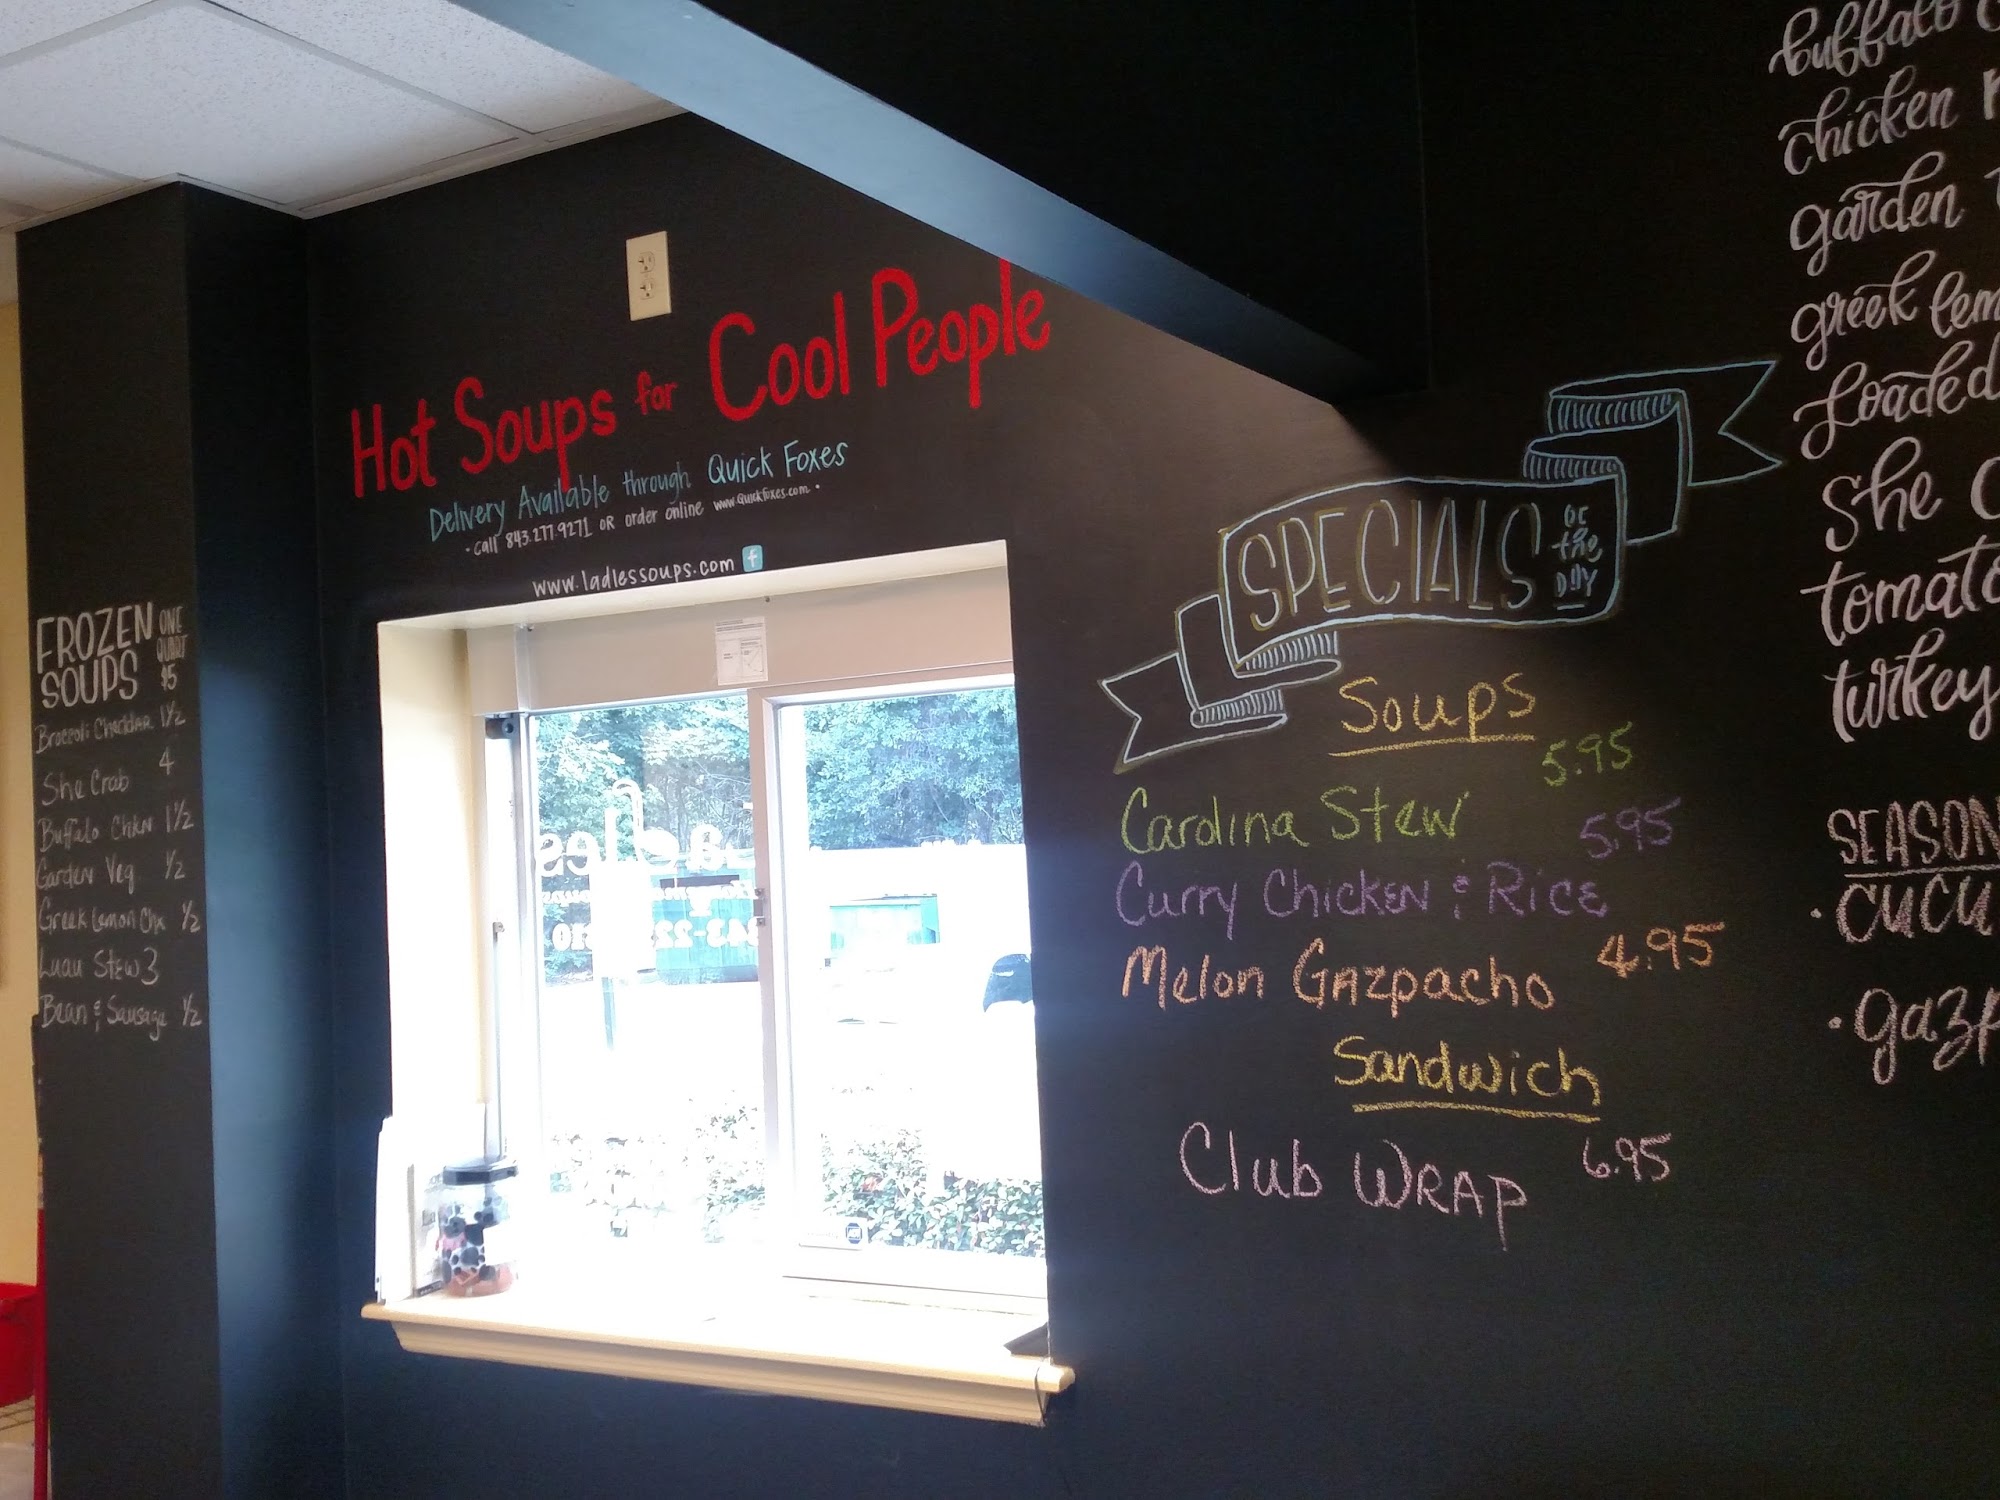 FROZEN SOUPS ONE QUART $5
Broccoli Cheddar 1½
She Crab 4
Buffalo Chkn 1½
Garden Veg. ½
Greek Lemon Chx ½
Luau Stew 3
Bean & Sausage ½
Hot Soups for Cool People
Delivery Available through Quick Foxes
• call 843.277.9271 OR order online www.Quickfoxes.com •
www.ladlessoups.com f
adles
SPECIALS OF the DAY
Soups
Carolina Stew 5.95
Curry Chicken & Rice 5.95
Melon Gazpacho 4.95
Sandwich
Club Wrap 6.95
buffalo c
chicken
garden
greek lem
Loaded
She c
tomato
turkey
SEASON
• CUCU
• gazp